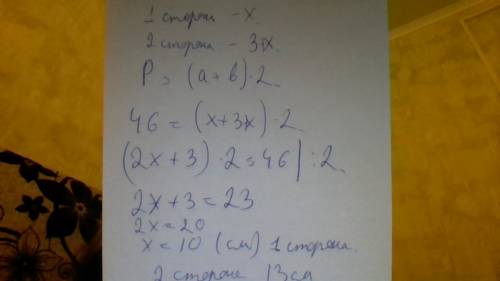 1 сторона - x.
2 сторона - 3+x.
P = (a+b)·2.
46 = (x+3+x)·2.
(2x+3)·2=46 |:2.
2x+3=23
2x=20
x=10 (см) 1 сторона.
2 сторона 13см